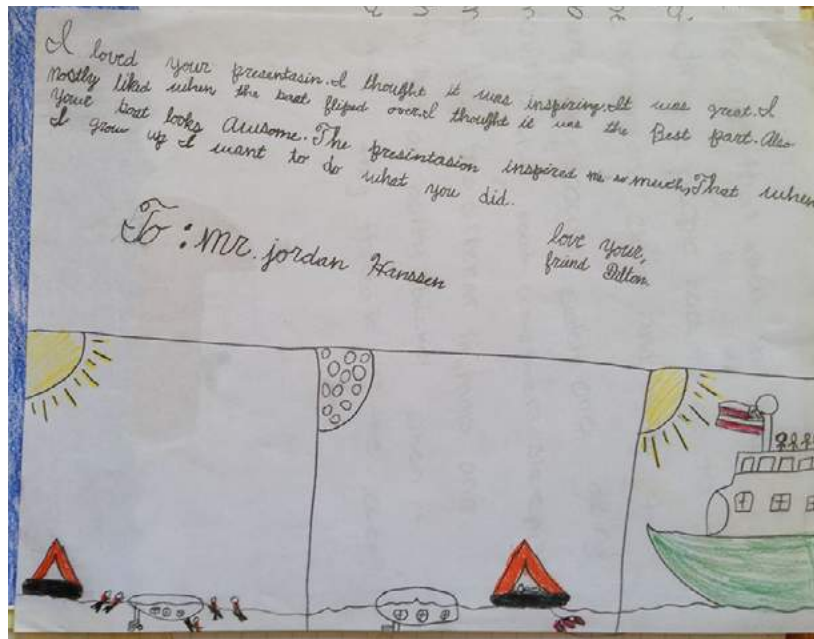 I loved your presentasin. I thought it was inspiring. It was great. I
mostly liked when the boat fliped over. I thought it was the Best part. Also
your boat looks awsome. The presintasion inspired me so much, That when
I grow up I want to do what you did.
To: Mr. jordan Hanssen
love your,
friend Dilton.